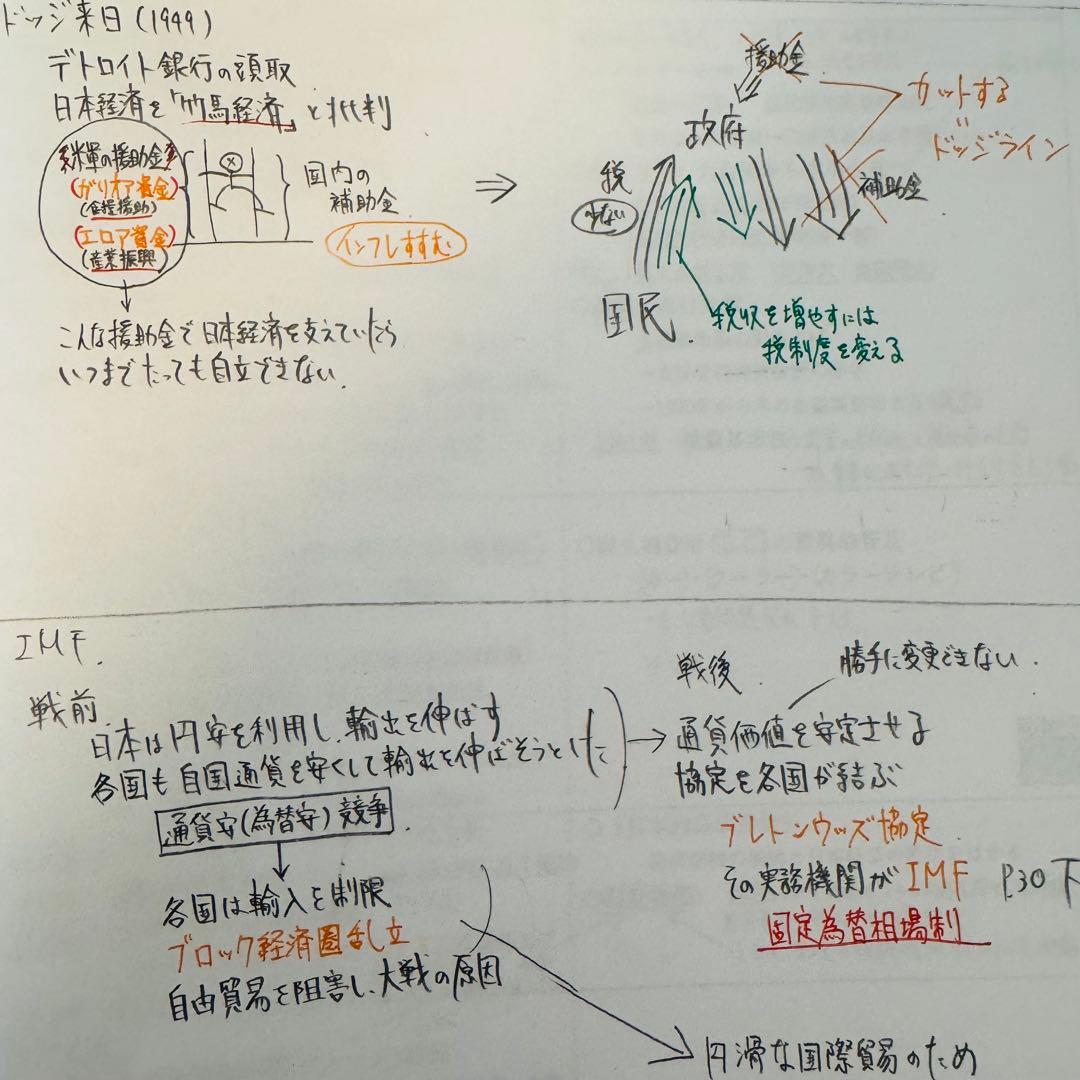 ドッジ来日(1949)
デトロイト銀行の頭取
日本経済を「竹馬経済」と批判
米軍の援助金
(ガリオア資金)
(食糧援助)
(エロア資金)
(産業振興)
国内の
補助金
インフレすすむ
こんな援助金で日本経済を支えていたら
いつまでたっても自立できない.
⇒
援助金
政府
カットする
〃
ドッジライン
税
少ない
補助金
国民
税収を増やすには
税制度を変える
IMF.
戦前
日本は円安を利用し、輸出を伸ばす
各国も自国通貨を安くして輸出を伸ばそうとした
通貨安(為替安)競争
各国は輸入を制限
ブロック経済圏乱立
自由貿易を阻害し、大戦の原因
戦後
勝手に変更できない.
通貨価値を安定させる
協定を各国が結ぶ
ブレトンウッズ協定
その実務機関がIMF P.30下
固定為替相場制
円滑な国際貿易のため